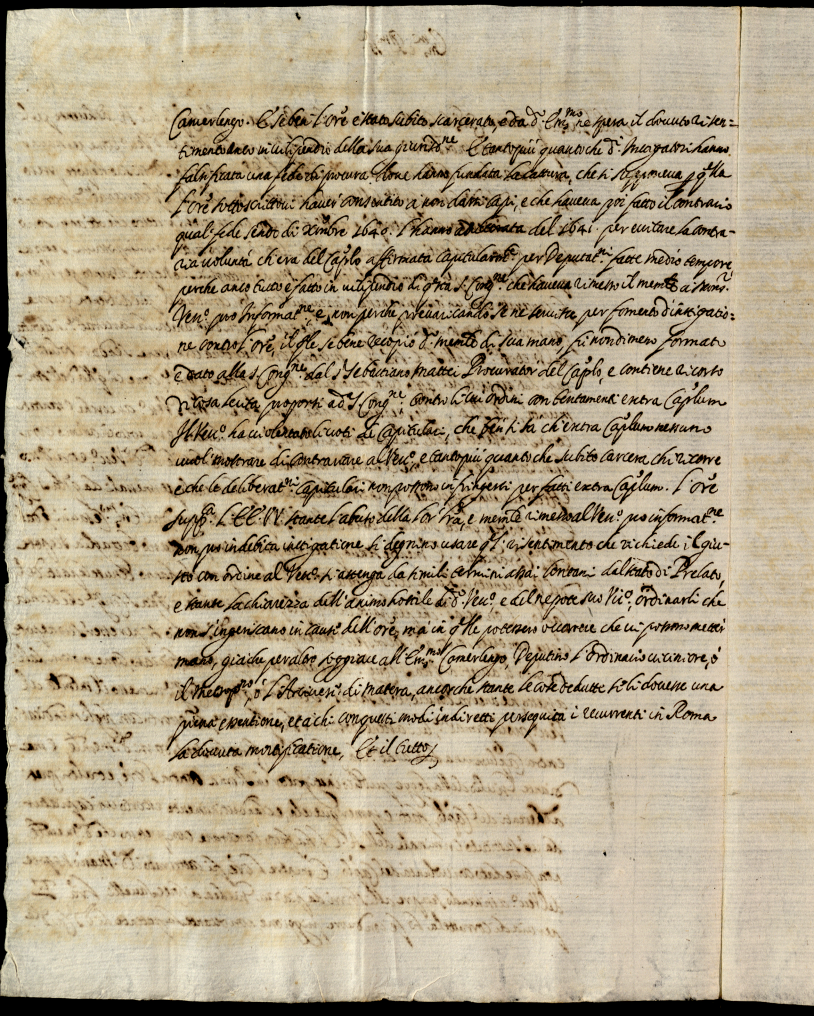 Camerlengo. E se ben l'Ore è stato subito scarcerato, e da d.o Em.mo ne spera il dovuto risen=
timento in vilipendio della sua giurisd.ne E tanto più quanto che d.i hanno
falsificata una fede di procura, dove hanno fundata la cattura, che si supponeva p q.lla
l'Ore sottoscrittovi haver consentito a non darsi capi, e che haveva poi fatto il contrario
qual fede sendo di Xmbre 1640. l'hanno del 1641. per evitare la contra=
ria volontà ch'era del Caplo affirmata capitularm.te per Deputat.ni fatte medio tempore,
perche anco tutto è fatto in vilipendio di q.sta s. Cong.ne, che haveva rimesso il mem.le a Mons.r
Vesc.o pro Informat.ne e non perche prevaricando se ne servisse per fomento d'instigatio=
ne contro l'Ore, il q.le se bene recopiò d.o mem.le di sua mano, fu nondimeno formato
e dato alla s. Cong.ne dal s.r Sebastiano Mattei Procurator del Caplo, e contiene ricorso
di cosa proposti ad.a s. Cong.ne, contro li cui ordini con tentamenti extra Caplum
Il Vesc.o ha violentato li voti de Capitulari, che ben si sa ch'extra Caplum nessuno
vuol mostrare di contravare al Vesc.o, e tanto più quanto che subito carcera chi ricorre
e che le deliberat.ni capitulari non possono infringersi per fatti extra Caplum. l'Ore
supp.ca l'EE. VV. stante l'abuso della lor l'ra, e mem.le rimesso al Vesc.o pro informat.ne
non pro indebita instigatione si degnino usare q.l risentimento che richiede il giu=
sto con ordine al Vesc.o si astenga da simili termini assai lontani dal stato di Prelato,
e stante la chiarezza dell'animo hostile di d.o Vesc.o, e del nepote suo Vic.o, ordinarli che
non s'ingeriscano in cause dell'Ore, ma in q.lle potessero occorrere che vi possono metter
mano, giache per altro soggiace all'Em.mo Camerlengo, Deputino l'Ordinario viciniore, o
il Metrop.no, ò l'Arcivesc.o di Matera, ancorche stante le cose dedutte se li dovesse una
piena esentione, et a chi con questi modi indiretti perseguita i recurrenti in Roma
la dovuta mortificatione, Et il tutto